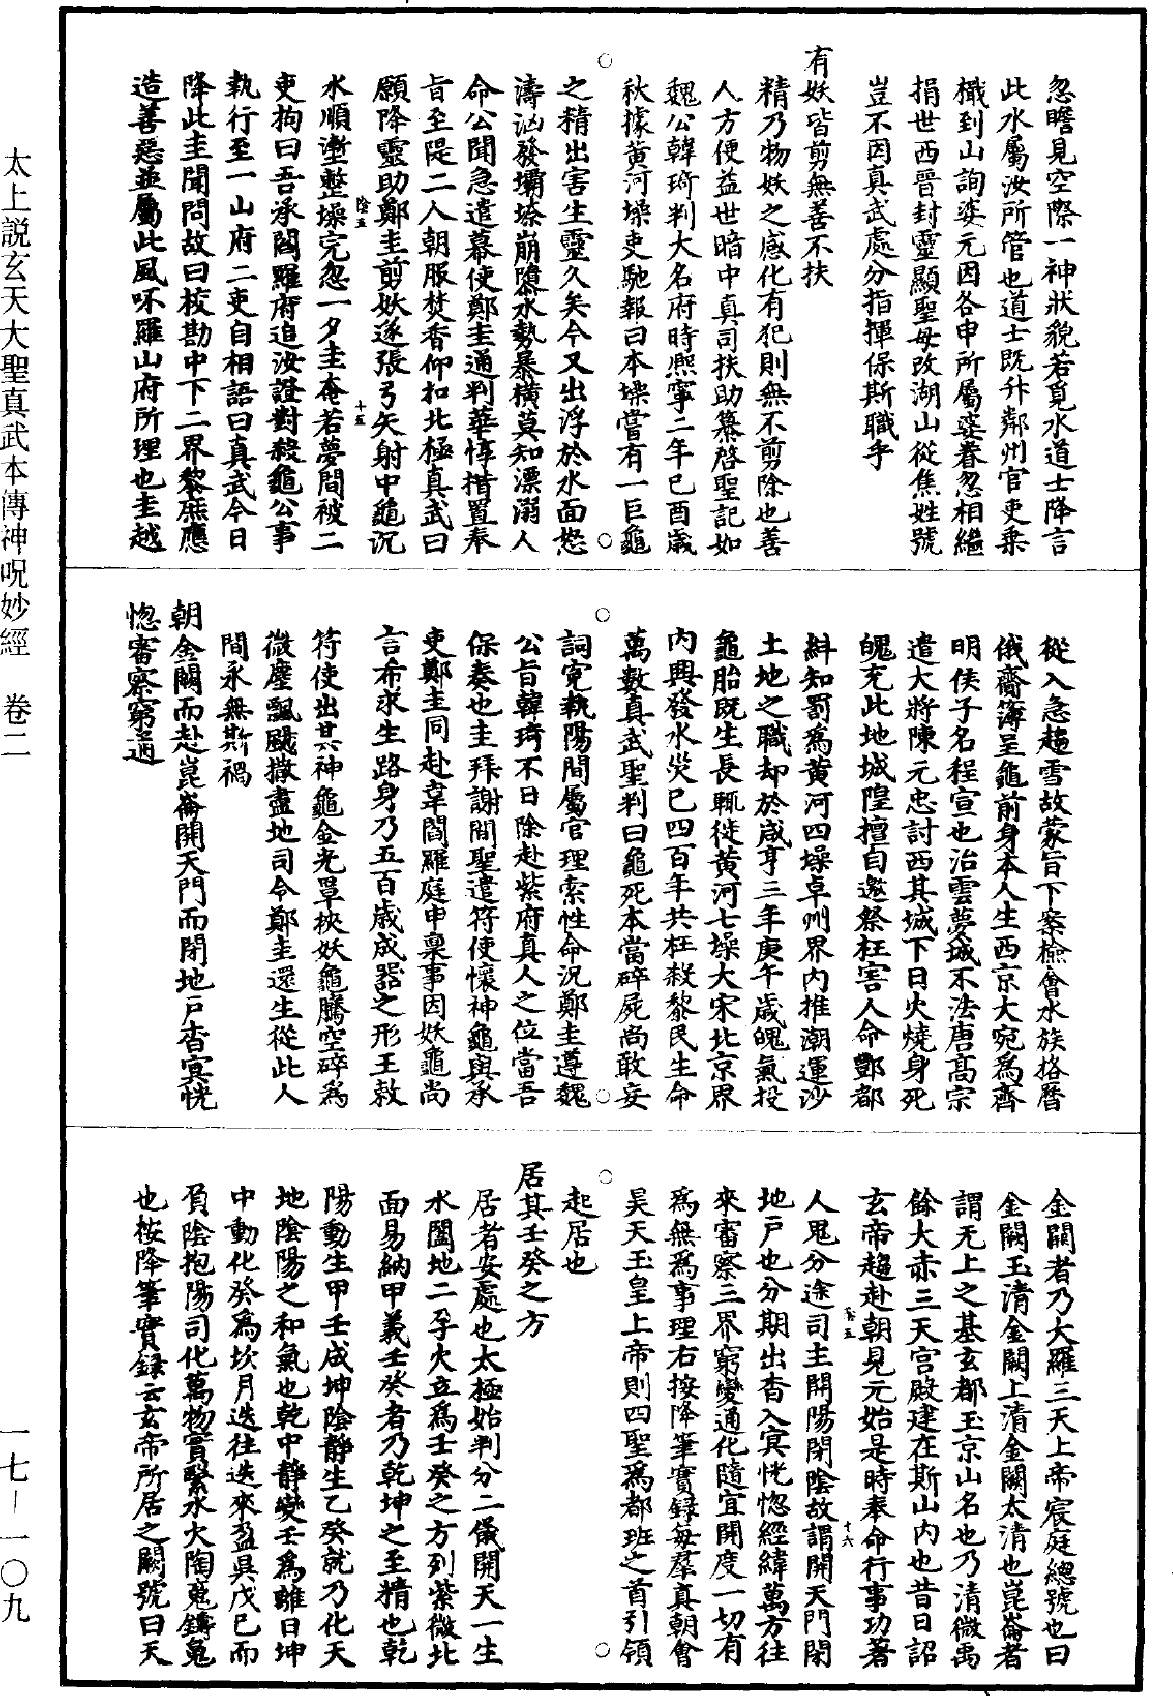 忽瞻見空際一神狀貌若覓水道士降言
此水屬汝所管也道士既升鄰州官吏乘
檥到山詢婆元因各申所屬婆眷忽相繼
捐世西晉封靈顯聖母改湖山從焦姓號
豈不因真武處分指揮保斯職乎
有妖皆剪無善不扶
精乃物妖之感化有犯則無不剪除也善
人方便益世暗中真司扶助纂啓聖記如
魏公韓琦判大名府時熙寧二年己酉歲
秋據黃河埽吏馳報曰本埽嘗有一巨龜
之精出害生靈久矣今又出浮於水面怒
濤汹發壩埽崩隳水勢暴橫莫知漂溺人
命公聞急遣幕使鄭圭通判華惇楷置奉
旨至隄二人朝服焚香仰扣北極真武曰
願降靈助鄭圭剪妖遂張弓矢射中龜沉
水順漸整埽完忽一夕圭奄若夢間被二
吏拘曰吾承閻羅府追汝證對殺龜公事
執行至一山府二吏自相語曰真武今日
降此圭聞問故曰校勘中下二界黎庶應
造善惡並屬此風吥羅山府所理也圭越
陰五
十五
從入急趨雪故蒙旨下案檢會水族格曆
俄齎簿呈龜前身本人生西京大宛爲齊
明侯子名程宣也治雲夢城不法唐高宗
遣大將陳元忠討西其城下日火燒身死
魄充此地城隍擅自邀祭枉害人命酆都
糾知罰爲黃河四埽卓州界內推潮運沙
土地之職却於咸亨三年庚午歲魄氣投
龜胎既生長輒徙黃河七埽大宋北京界
內興發水災已四百年共枉殺黎民生命
萬數真武聖判曰龜死本當碎屍尚敢妄
詞寃執陽間屬官理索性命況鄭圭遵魏
公旨韓琦不日除赴紫府真人之位當吾
保奏也圭拜謝間聖遣符使懷神龜與承
吏鄭圭同赴羍閻羅庭申稟事因妖龜尚
言希求生路身乃五百歲成器之形王敕
符使出其神龜金光罩挾妖龜騰空碎爲
微塵飄颺撒盡地司令鄭圭還生從此人
間永無斯禍
朝金闕而赴崑崙開天門而閉地戶杳冥恍
惚審察窮通
金闕者乃大羅三天上帝宸庭總號也曰
金闕玉清金闕上清金闕太清也崑崙者
謂无上之基玄都玉京山名也乃清微禹
餘大赤三天宮殿建在斯山內也昔日詔
玄帝趨赴朝見元始是時奉命行事功著
人鬼分途司主開陽閉陰故謂開天門閉
地戶也分期出杳入冥恍惚經緯萬方往
來審察三界窮變通化隨宜開度一切有
爲無爲事理右按降筆實錄每羣真朝會
昊天玉皇上帝則四聖爲都班之首引領
起居也
居其壬癸之方
居者安處也太極始判分二儀開天一生
水闔地二孕火立爲壬癸之方列紫微北
面易納甲義壬癸者乃乾坤之至精也乾
陽動生甲壬成坤陰靜生乙癸就乃化天
地陰陽之和氣也乾中靜變壬爲離日坤
中動化癸爲坎月迭往迭來盈昃戊己而
負陰抱陽司化萬物實繫水火陶䰟鑄䰟
也按降筆實錄云玄帝所居之闕號曰天
陰五
十六
太上説玄天大聖真武本傳神呪妙經 卷二
一七－一〇九